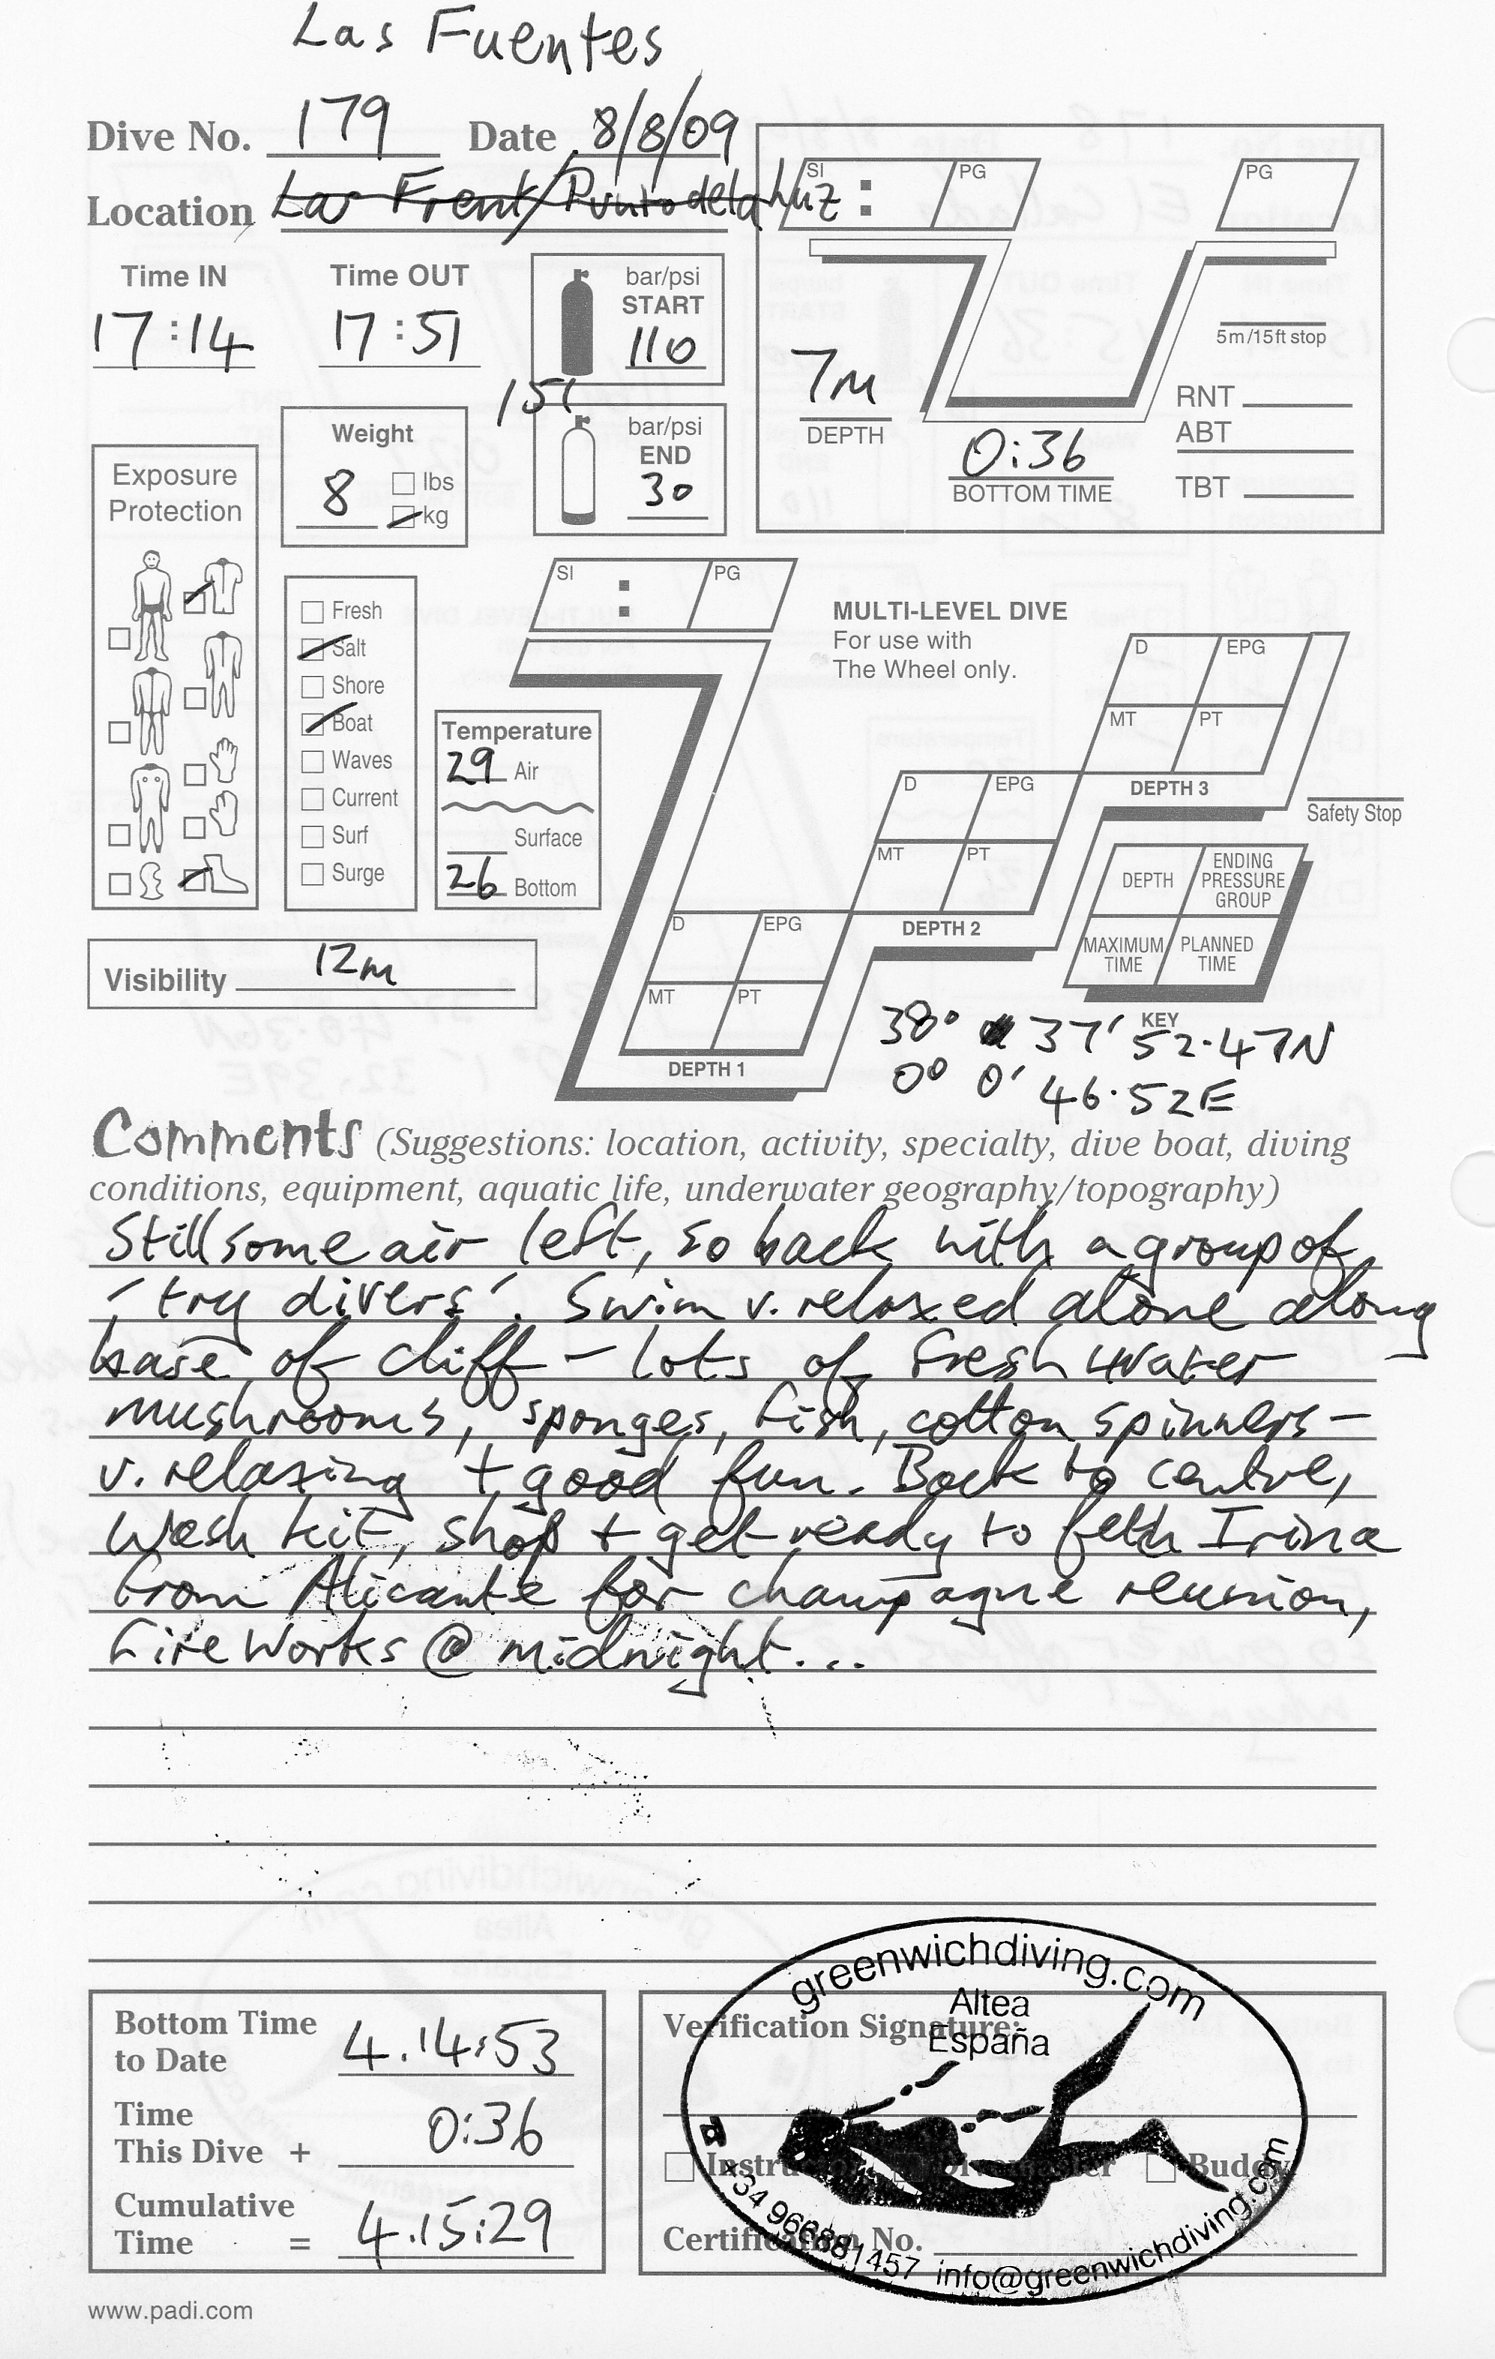 Las Fuentes
Dive No. 179 Date 8/8/09
Location Las Frent/Punto de la Luz
SI : PG PG
Time IN Time OUT
17:14 17:51
bar/psi
START
110
15l
bar/psi
END
30
5m/15ft stop
7m
DEPTH
0:36
BOTTOM TIME
RNT
ABT
TBT
Weight
8 lbs
kg
Exposure
Protection
Fresh
Salt
Shore
Boat
Waves
Current
Surf
Surge
Temperature
29 Air
Surface
26 Bottom
Visibility 12m
SI : PG
MULTI-LEVEL DIVE
For use with
The Wheel only.
D EPG
MT PT
DEPTH 3
D EPG
MT PT
DEPTH 2
D EPG
MT PT
DEPTH 1
Safety Stop
DEPTH ENDING PRESSURE GROUP
MAXIMUM TIME PLANNED TIME
KEY
38° 37' 52.47N
0° 0' 46.52E
Comments (Suggestions: location, activity, specialty, dive boat, diving
conditions, equipment, aquatic life, underwater geography/topography)
Still some air left, so back with a group of
'try divers'. Swim v. relaxed alone along
base of cliff - lots of fresh water
mushrooms, sponges, fish, cotton spinners -
v. relaxing + good fun. Back to centre,
wash kit, shop + get ready to fetch Irina
from Alicante for champagne reunion,
fireworks @ midnight...
Bottom Time
to Date 4.14:53
Time
This Dive + 0:36
Cumulative
Time = 4.15:29
Verification Signature:
Instructor Divemaster Buddy
Certification No.
greenwichdiving.com
Altea
España
+34 966881457 info@greenwichdiving.com
www.padi.com